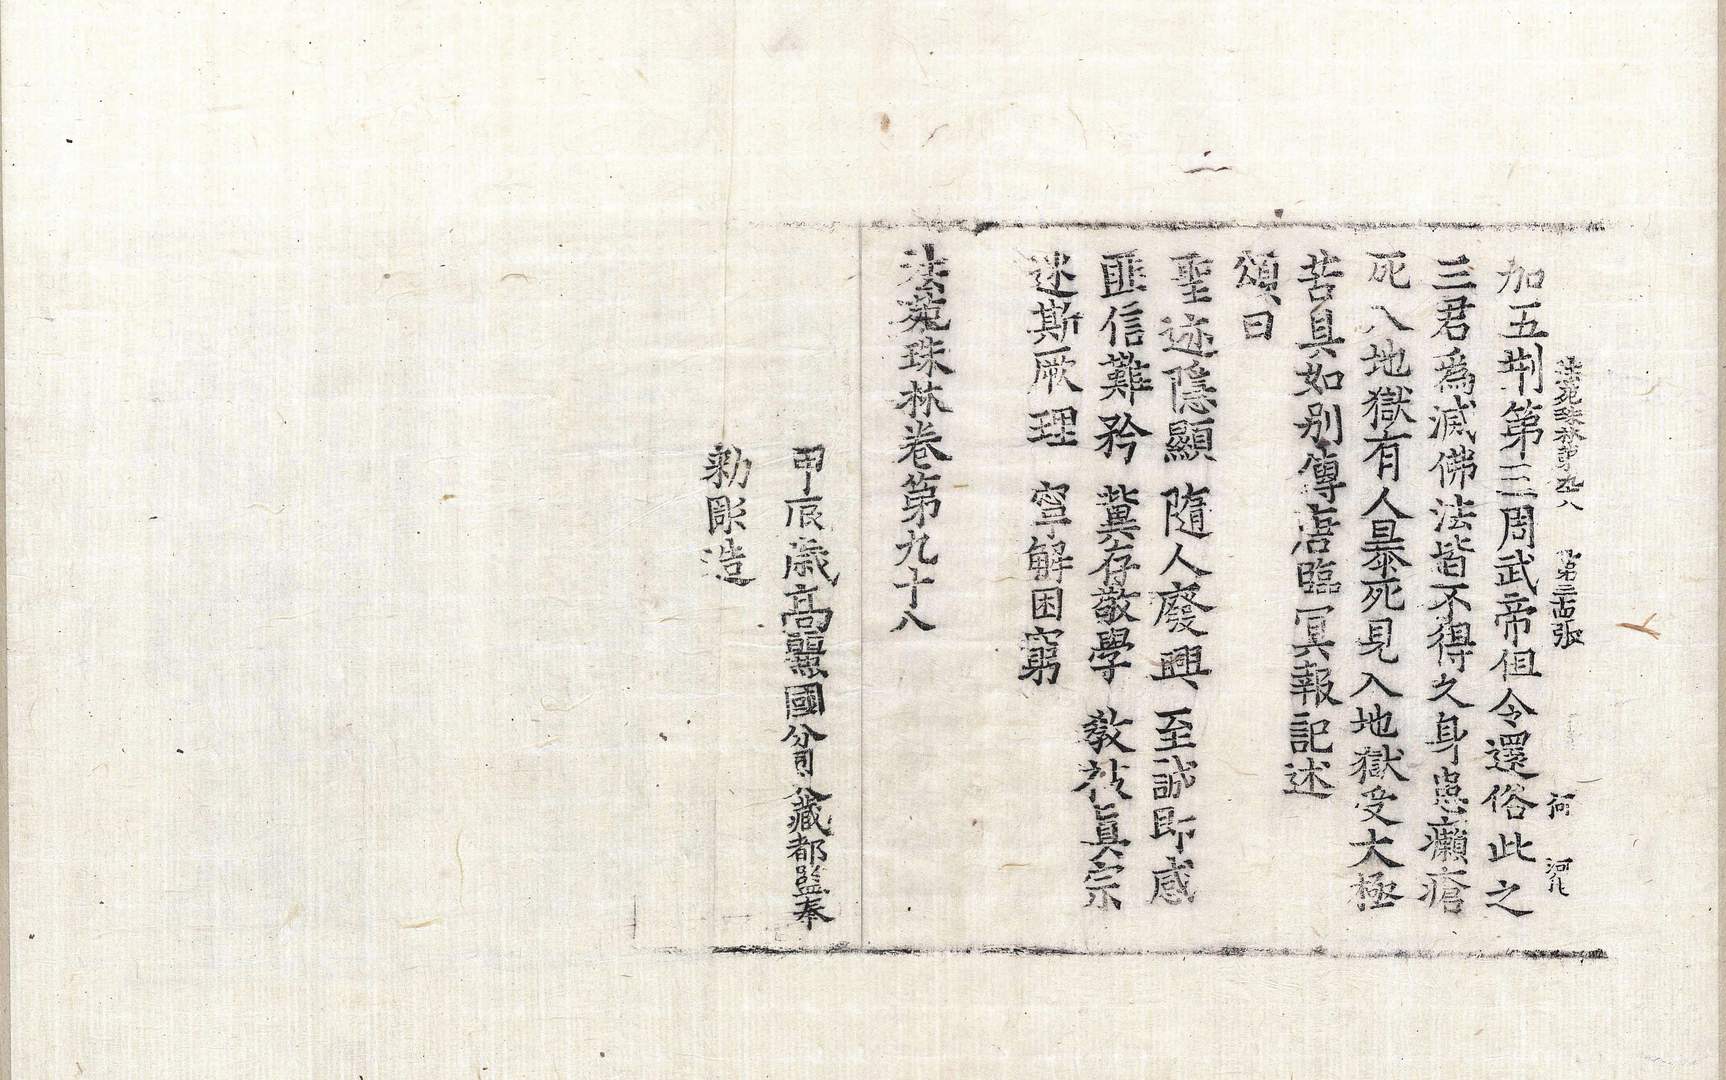 法苑珠林第九十八 第三十古張 何 河化
加五刑第三周武帝但令還俗此之
三君爲滅佛法皆不得久身患癩瘡
死入地獄有人暴死見入地獄受大極
苦具如別傳唐臨冥報記述
頌曰
聖迹隱顯 隨人廢興 至誠即感
匪信難矜 冀存敬學 敎枝眞宗
迷斯厥理 寧解困窮
法苑珠林卷第九十八
甲辰歳高麗國分司大藏都監奉
勅彫造